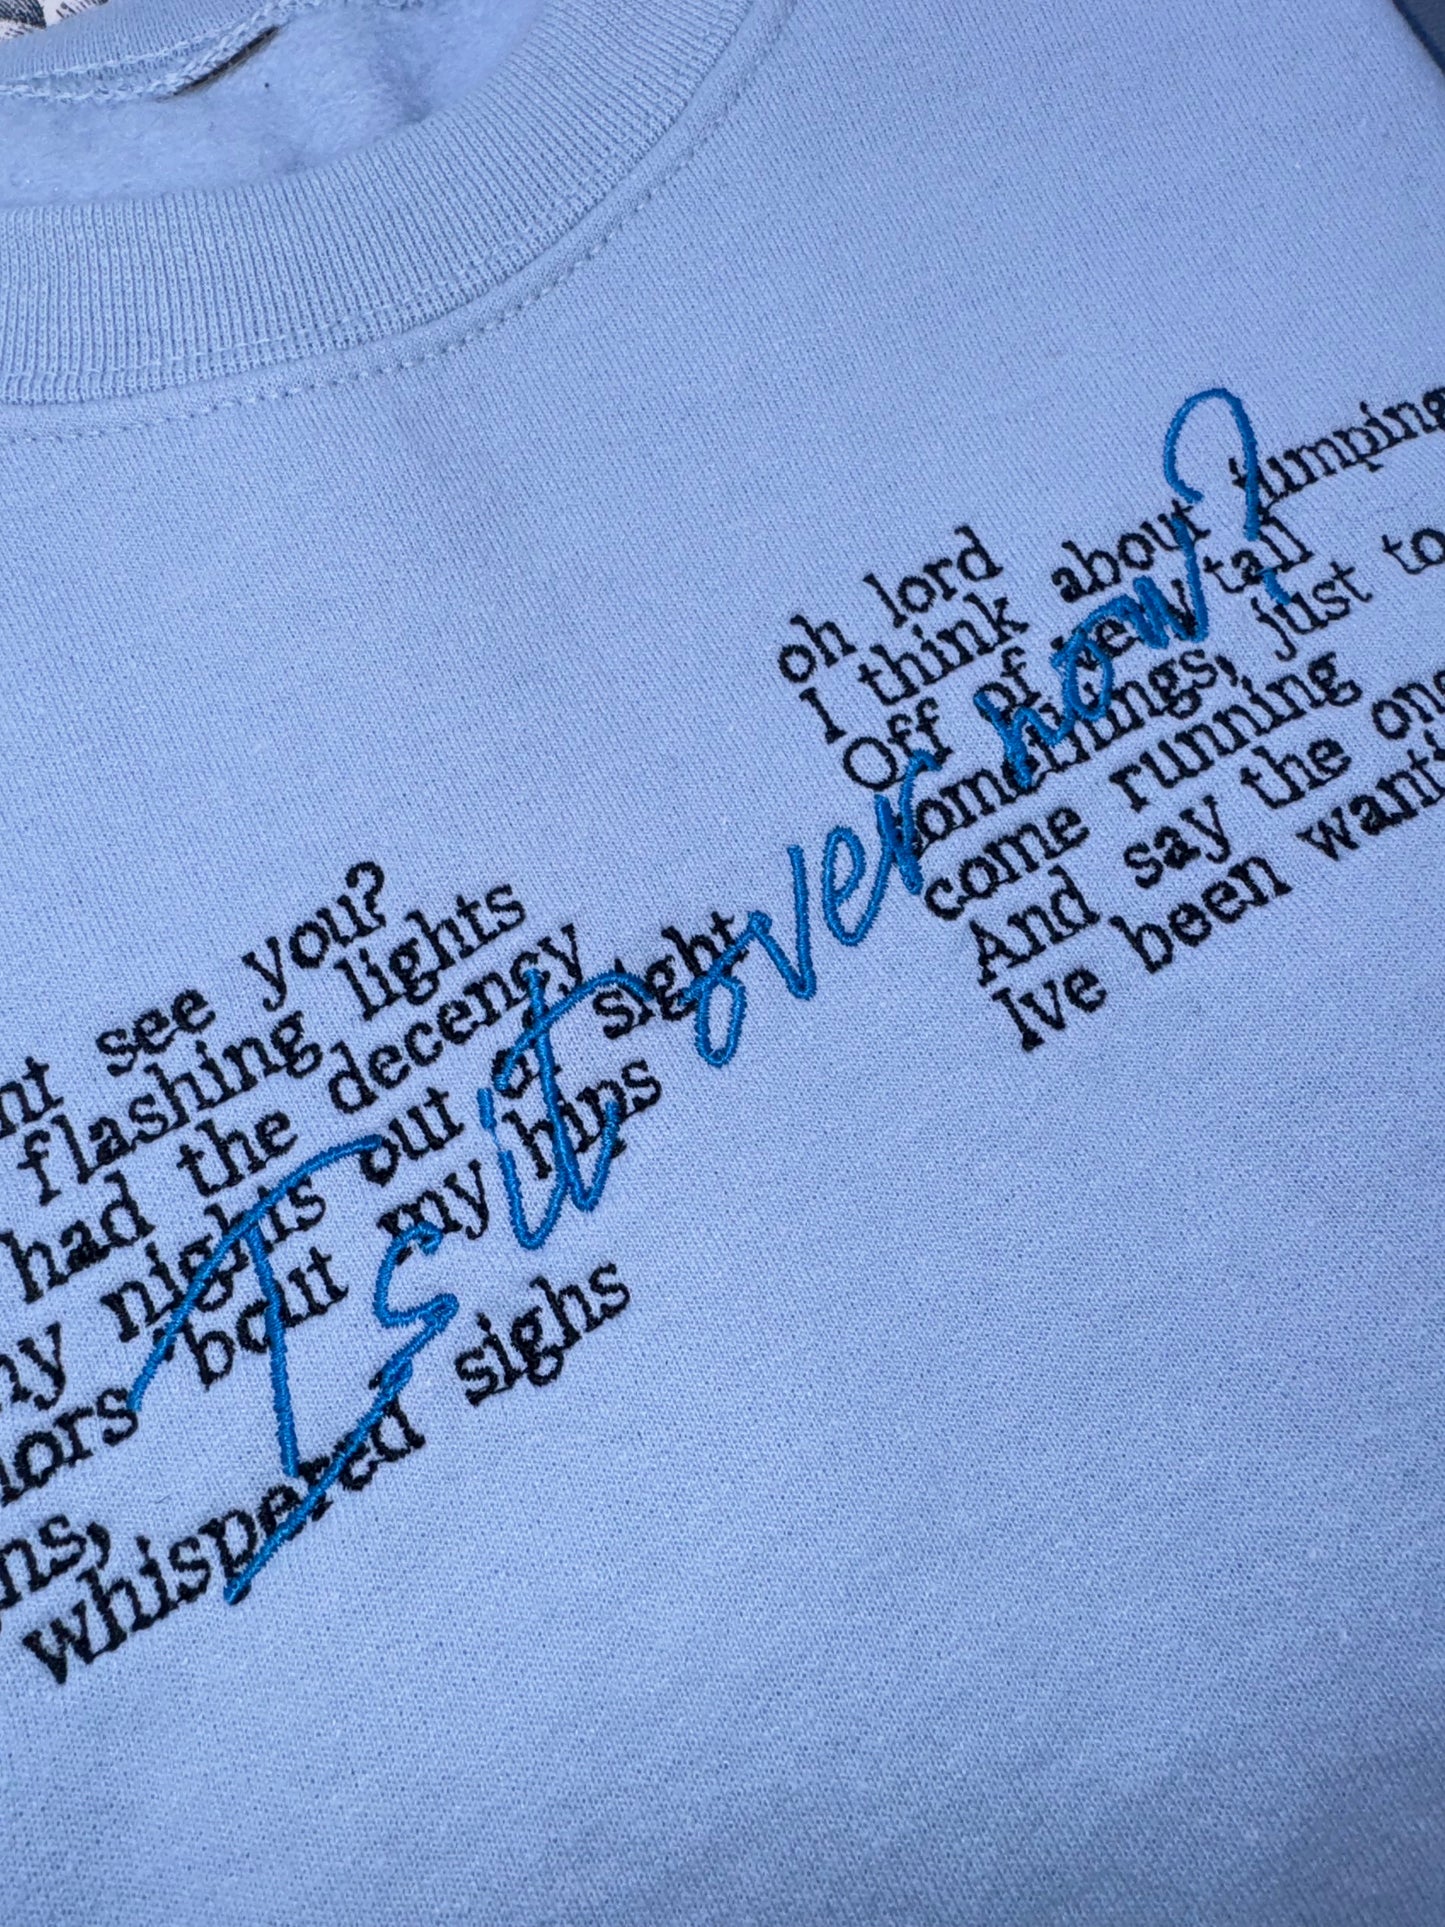 see you?
flashing lights
had the decency
nights out of sight
'bout my hips
whispered sighs
Is it over now?
oh lord
I think about jumping
Off of very tall
somethings, just to
come running
And say the one
Ive been want